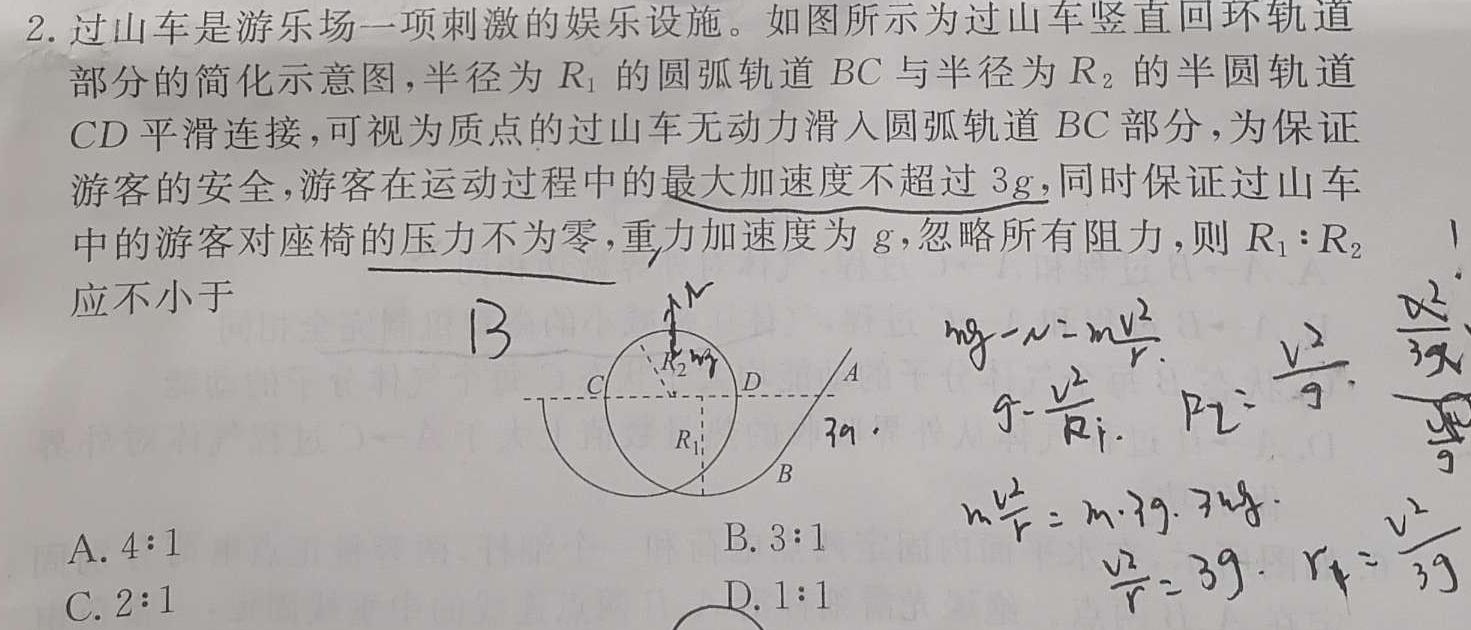 2. 过山车是游乐场一项刺激的娱乐设施。如图所示为过山车竖直回环轨道
部分的简化示意图,半径为 R₁ 的圆弧轨道 BC 与半径为 R₂ 的半圆轨道
CD 平滑连接,可视为质点的过山车无动力滑入圆弧轨道 BC 部分,为保证
游客的安全,游客在运动过程中的最大加速度不超过 3g,同时保证过山车
中的游客对座椅的压力不为零,重力加速度为 g,忽略所有阻力,则 R₁∶R₂
应不小于
B
N
mg
R₂
C
D
A
R₁
B
3g.
mg-N=m\frac{v²}{r}.
R₂=\frac{v²}{g}.
m\frac{v²}{r}=m·3g. 3mg.
\frac{v²}{r}=3g.
=\frac{v²}{3g}
A. 4∶1
B. 3∶1
C. 2∶1
D. 1∶1